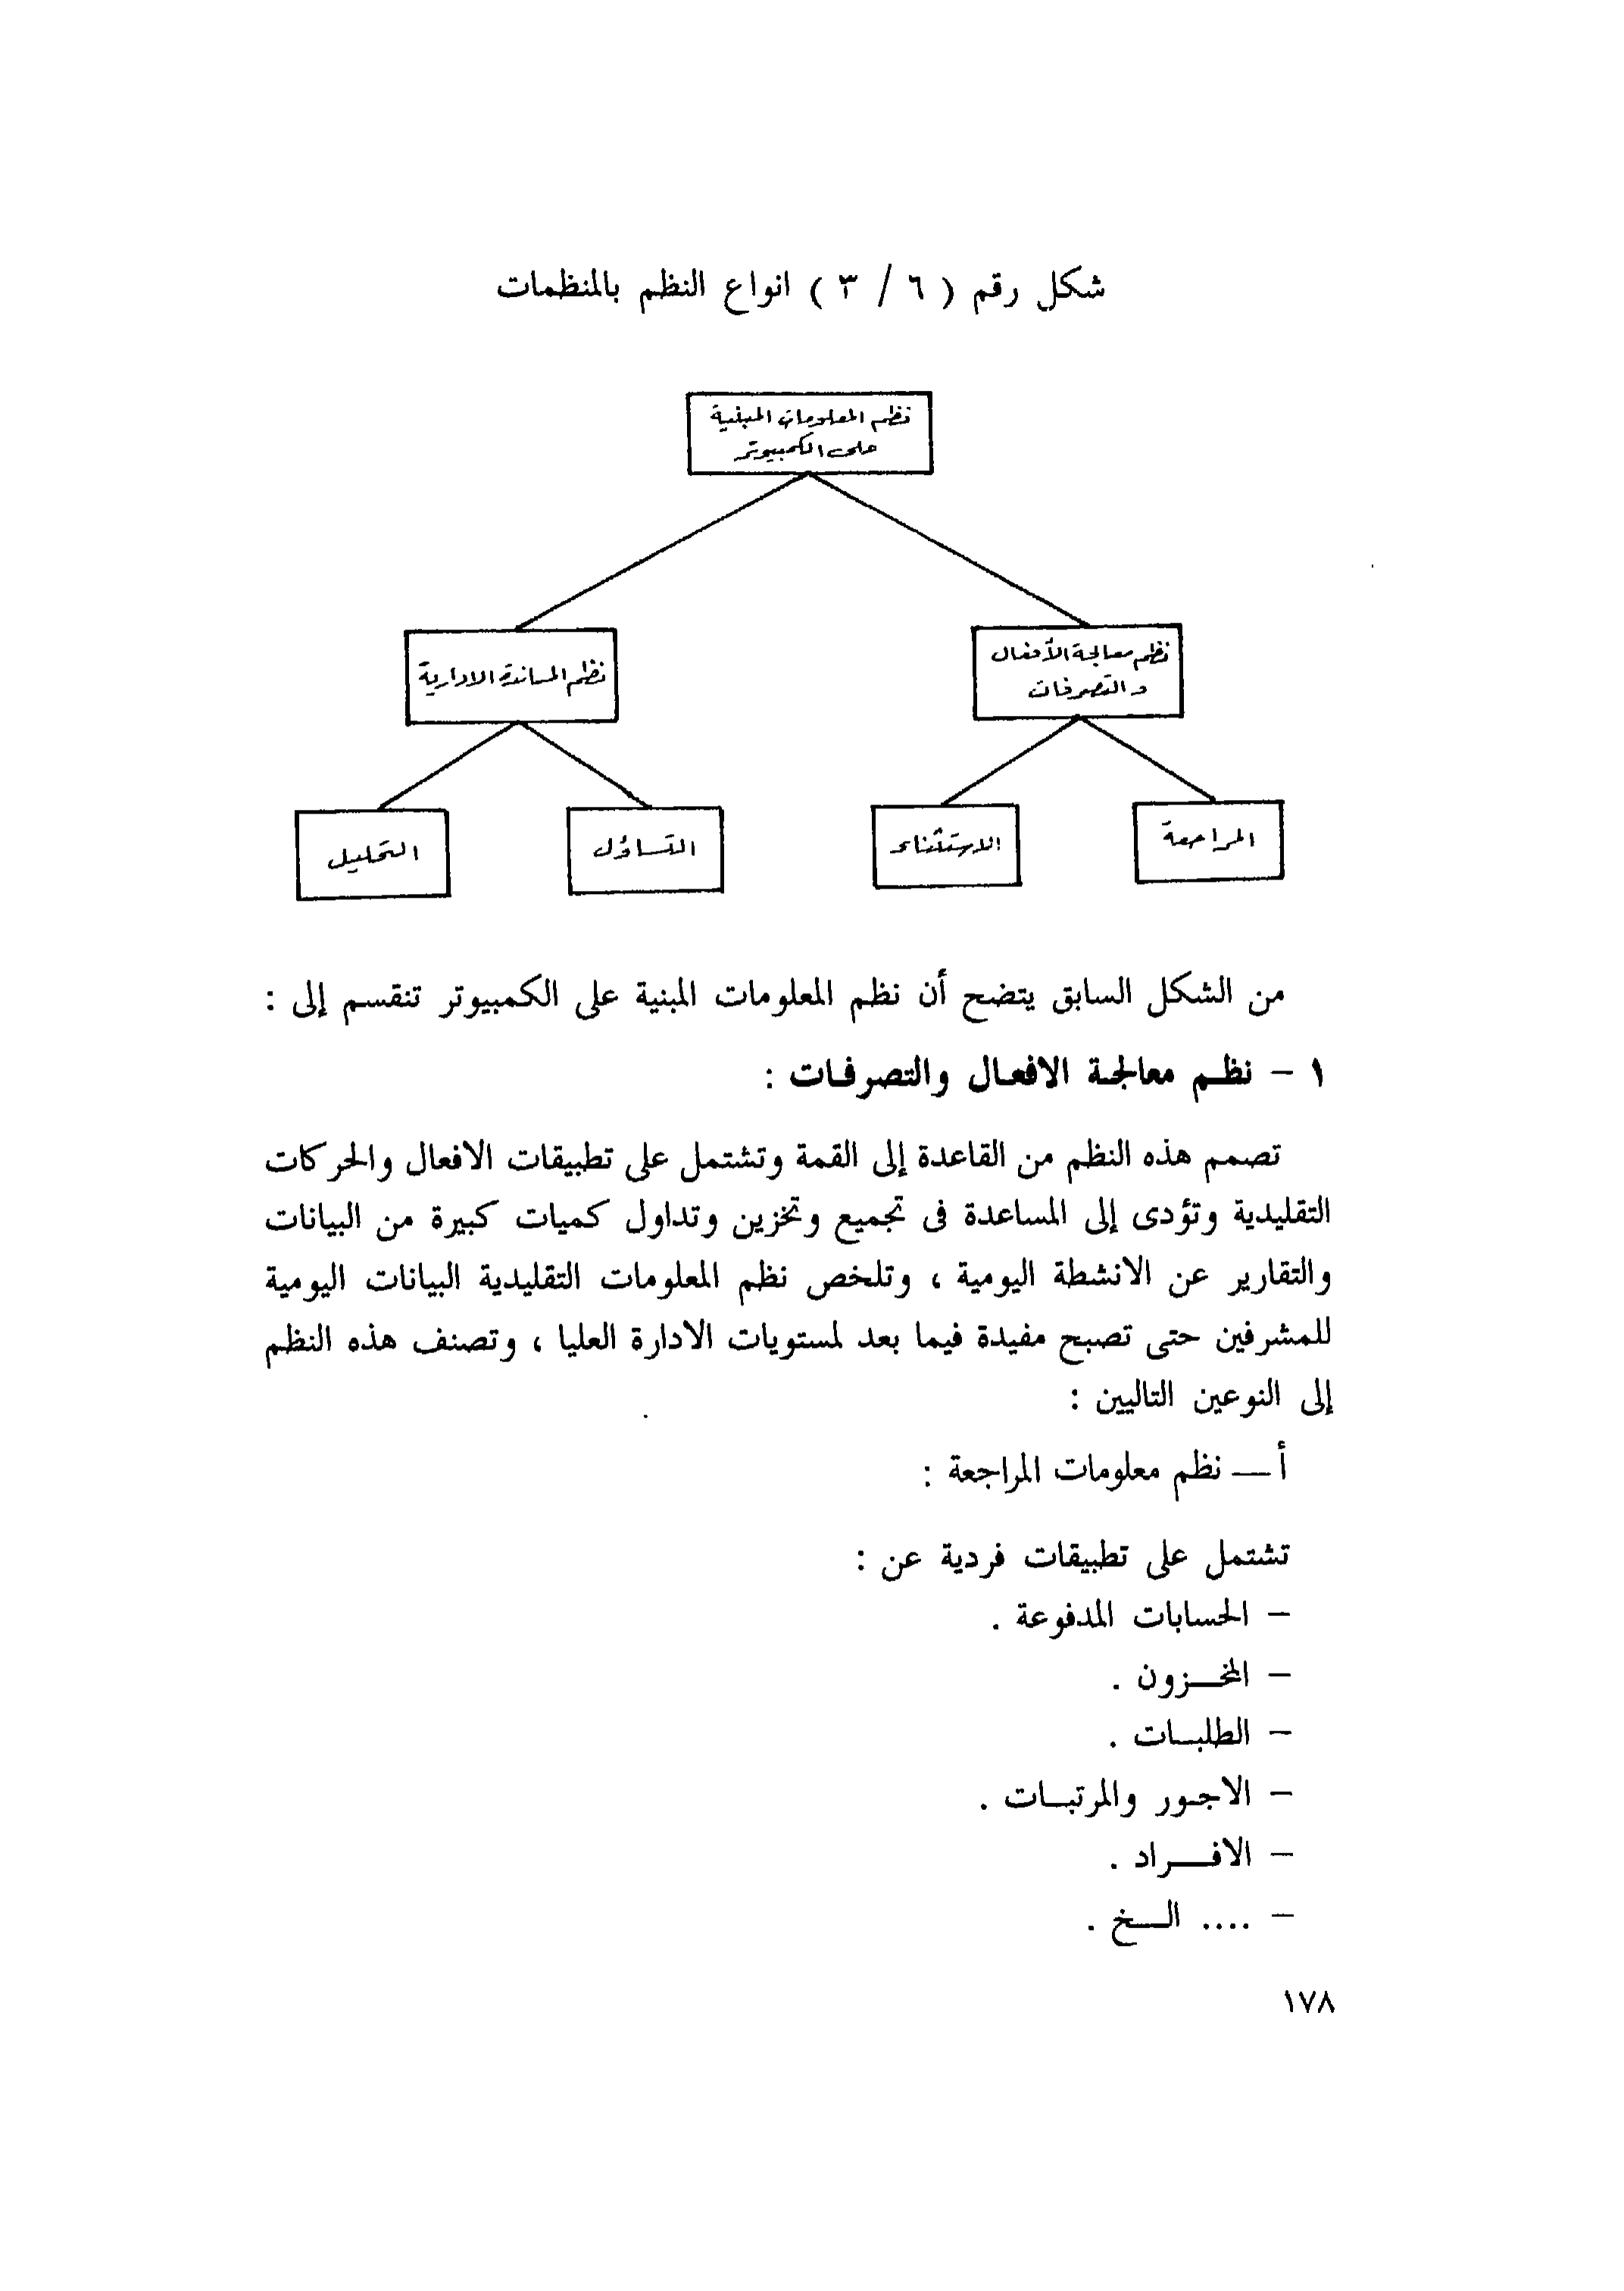 شكل رقم ( ٦ / ٣ ) انواع النظم بالمنظمات
نظم المعلومات المبنية
على الكمبيوتر
نظم معالجة الأفعال
والتصرفات
نظم المساندة الادارية
المراجعة
الاستثناء
التساؤل
التحليل
من الشكل السابق يتضح أن نظم المعلومات المبنية على الكمبيوتر تنقسم إلى :
١ – نظـم معالجـة الافعـال والتصرفـات :
تصمم هذه النظم من القاعدة إلى القمة وتشتمل على تطبيقات الافعال والحركات
التقليدية وتؤدى إلى المساعدة فى تجميع وتخزين وتداول كميات كبيرة من البيانات
والتقارير عن الانشطة اليومية ، وتلخص نظم المعلومات التقليدية البيانات اليومية
للمشرفين حتى تصبح مفيدة فيما بعد لمستويات الادارة العليا ، وتصنف هذه النظم
إلى النوعين التاليين :
أ ــ نظم معلومات المراجعة :
تشتمل على تطبيقات فردية عن :
– الحسابات المدفوعة .
– المخــزون .
– الطلبـات .
– الاجـور والمرتبـات .
– الافــراد .
– .... الــخ .
١٧٨